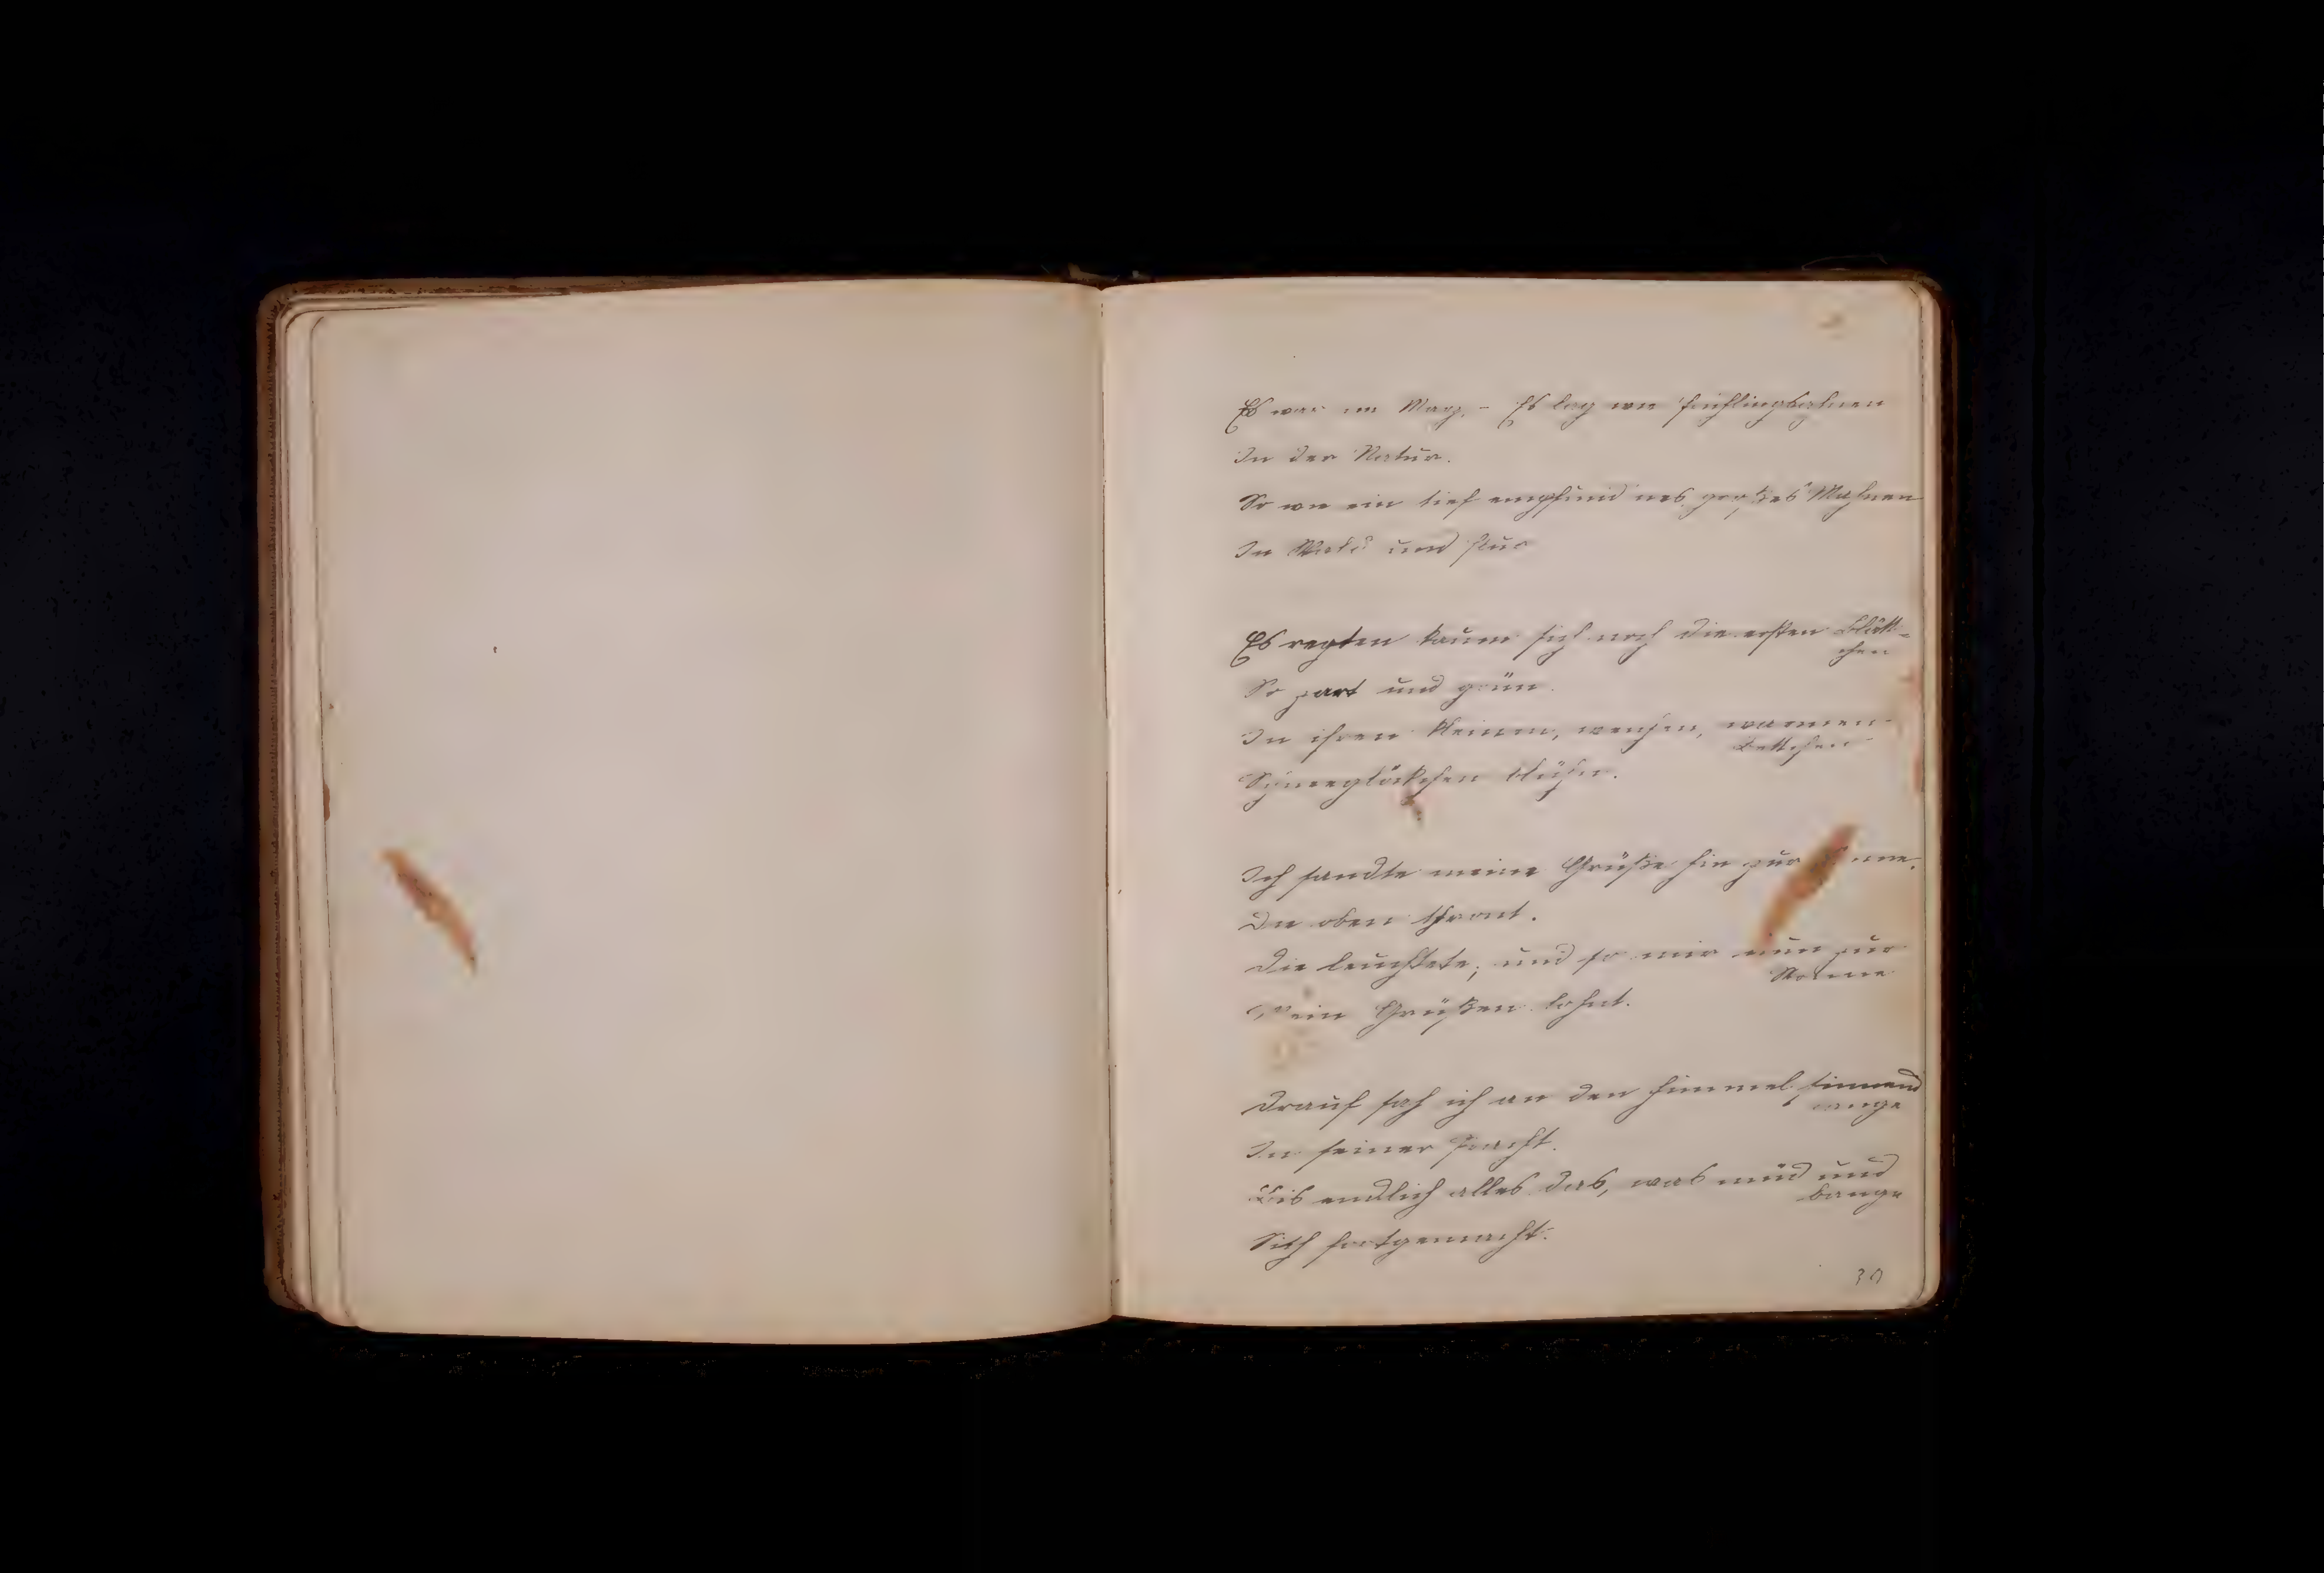 Es war im März. – Es lag wie Frühlingsahnen
In der Natur.
So wie ein tief empfund'nes großes Mahnen
In Wald und Flur
Es regten kaum sich noch die ersten Blätt-
chen
So zart und grün.
In ihren kleinen, weichen, warmen
Bettchen
Schneeglöckchen blühn.
Ich sandte meine Grüße hin zur
Die oben thront.
Die leuchtete, und so mir nun zur
Wonne
Mein Grüßen lohnt.
Drauf sah ich an den Himmel, sinnend
lange
In seiner Pracht.
Bis endlich alles das, was müd und
bange
Sich fortgemacht.
30